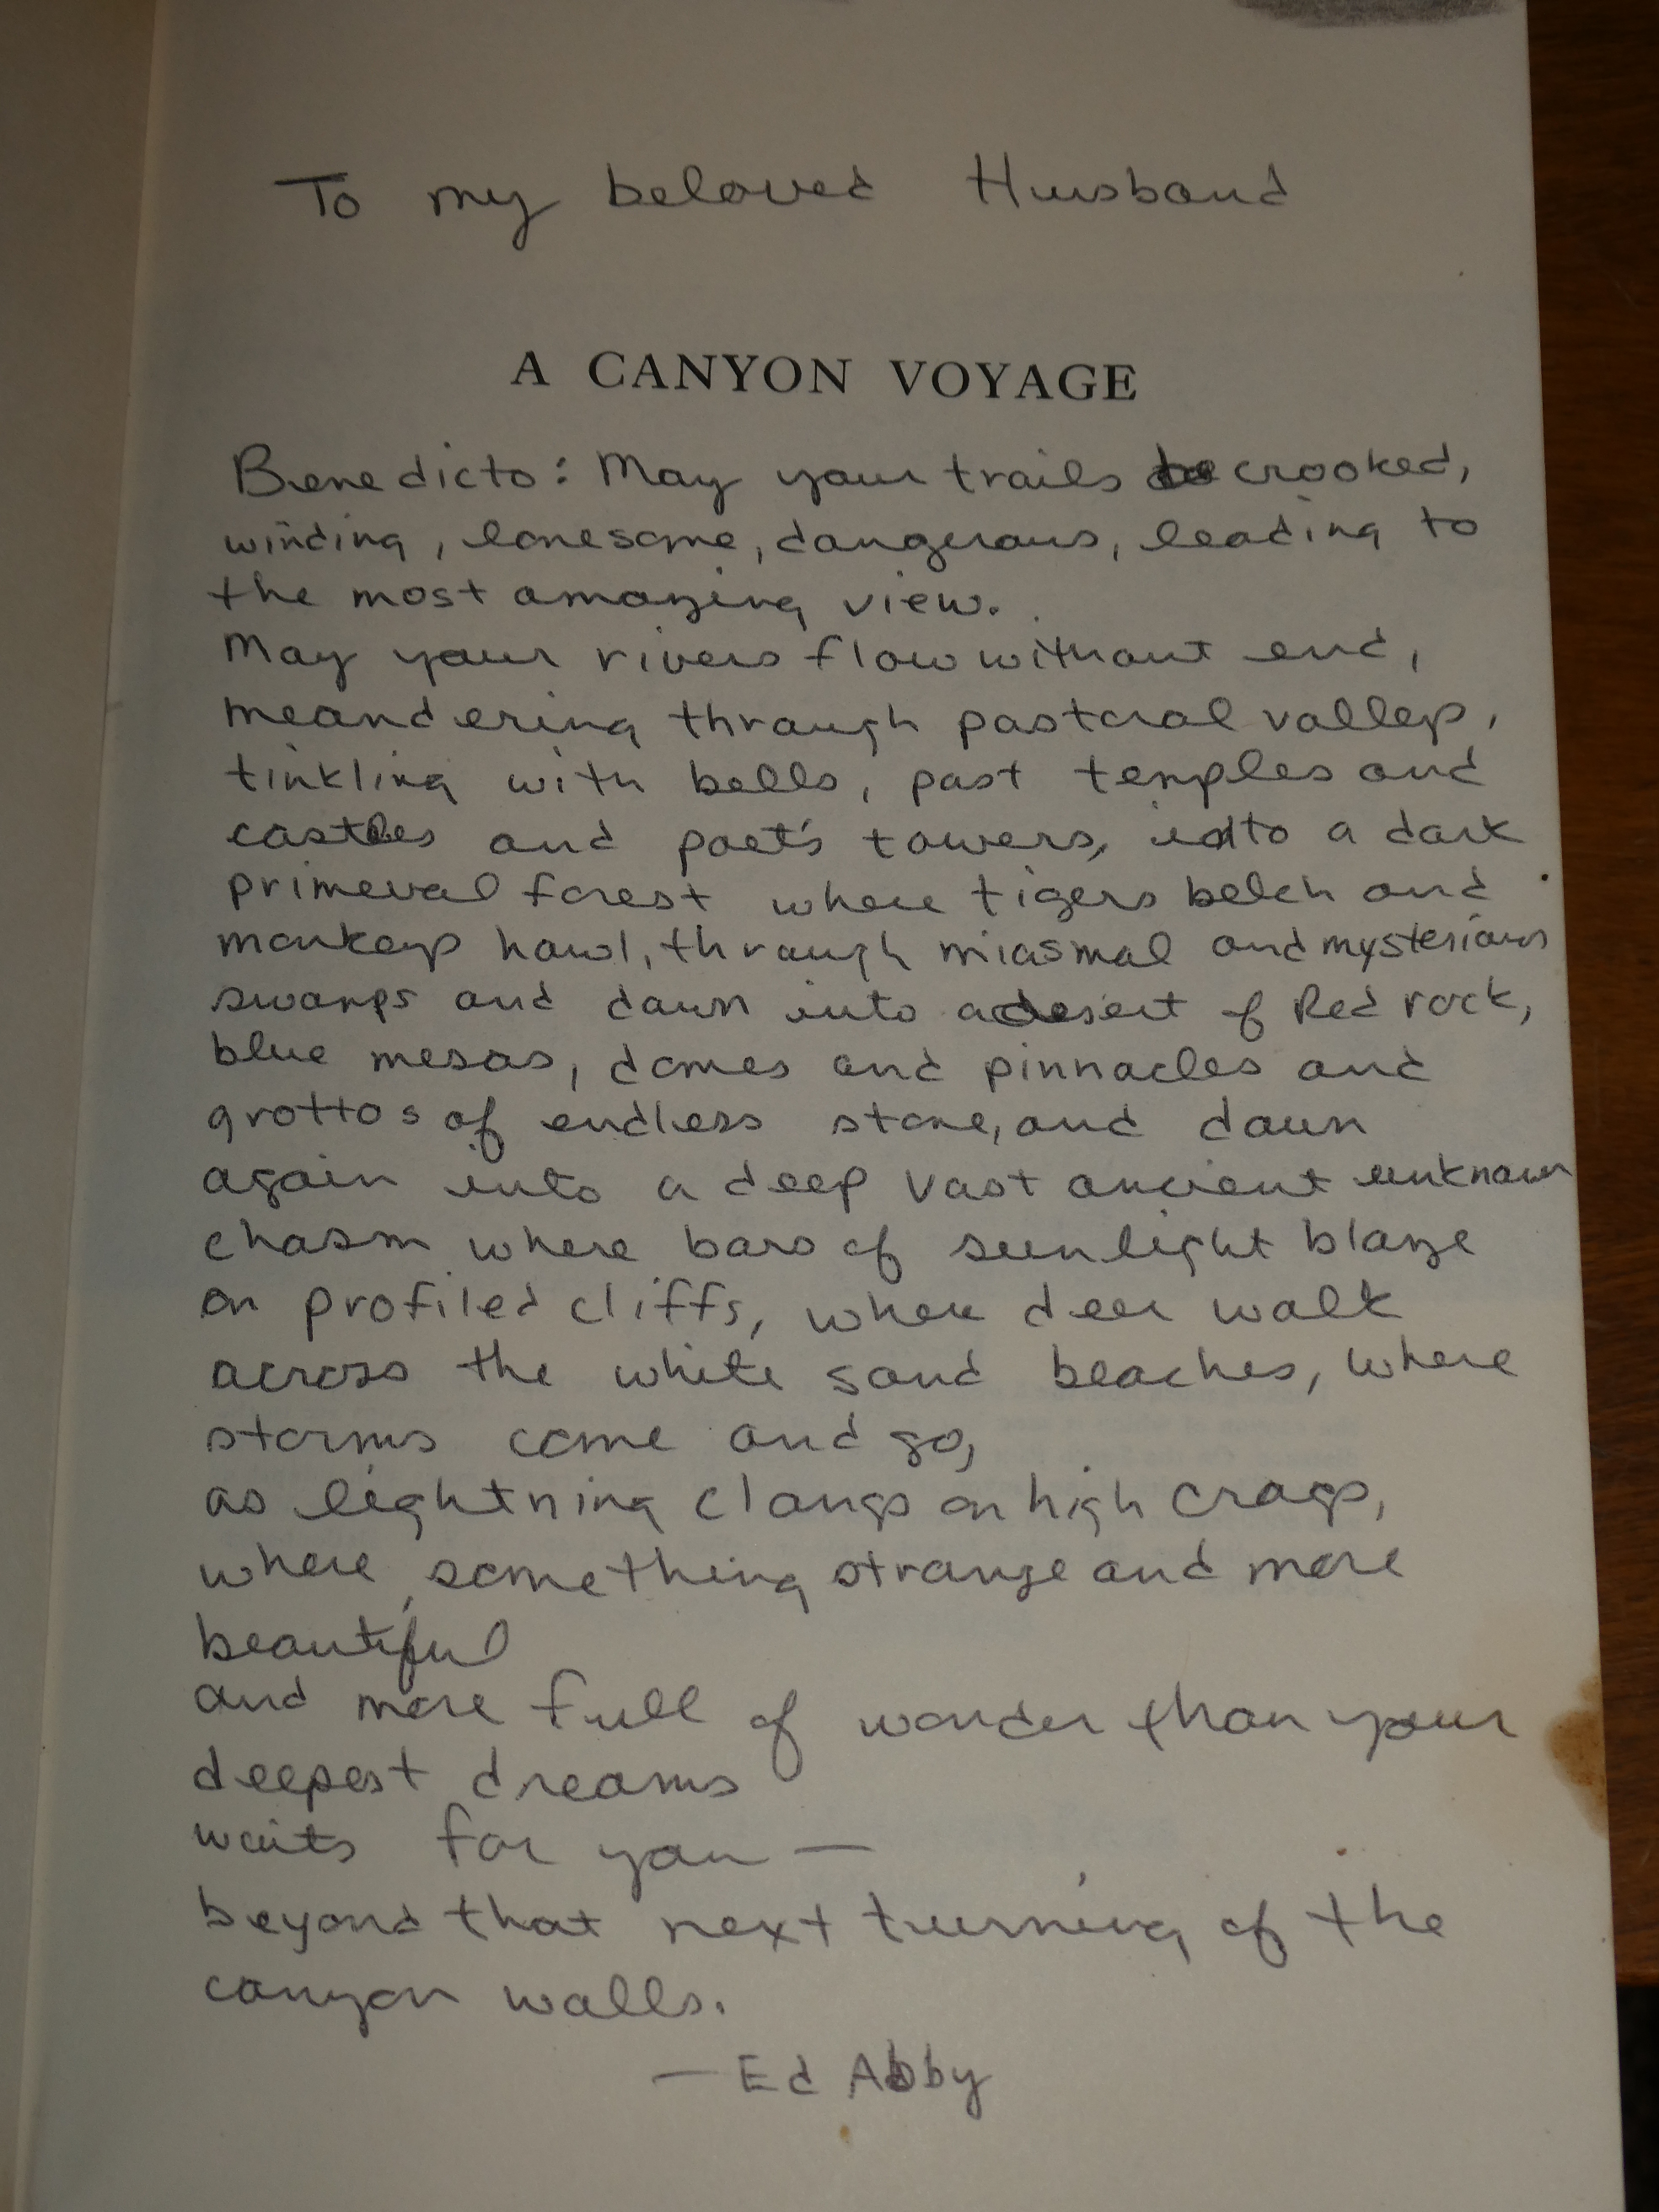 To my beloved Husband
A CANYON VOYAGE
Benedicto: May your trails be crooked,
winding, lonesome, dangerous, leading to
the most amazing view.
May your rivers flow without end,
meandering through pastoral valleys,
tinkling with bells, past temples and
castles and poet's towers, into a dark
primeval forest where tigers belch and
monkeys howl, through miasmal and mysterious
swamps and down into a desert of Red rock,
blue mesas, domes and pinnacles and
grottos of endless stone, and down
again into a deep vast ancient unknown
chasm where bars of sunlight blaze
on profiled cliffs, where deer walk
across the white sand beaches, where
storms come and go,
as lightning clangs on high crags,
where something strange and more
beautiful
and more full of wonder than your
deepest dreams
waits for you —
beyond that next turning of the
canyon walls.
— Ed Abby